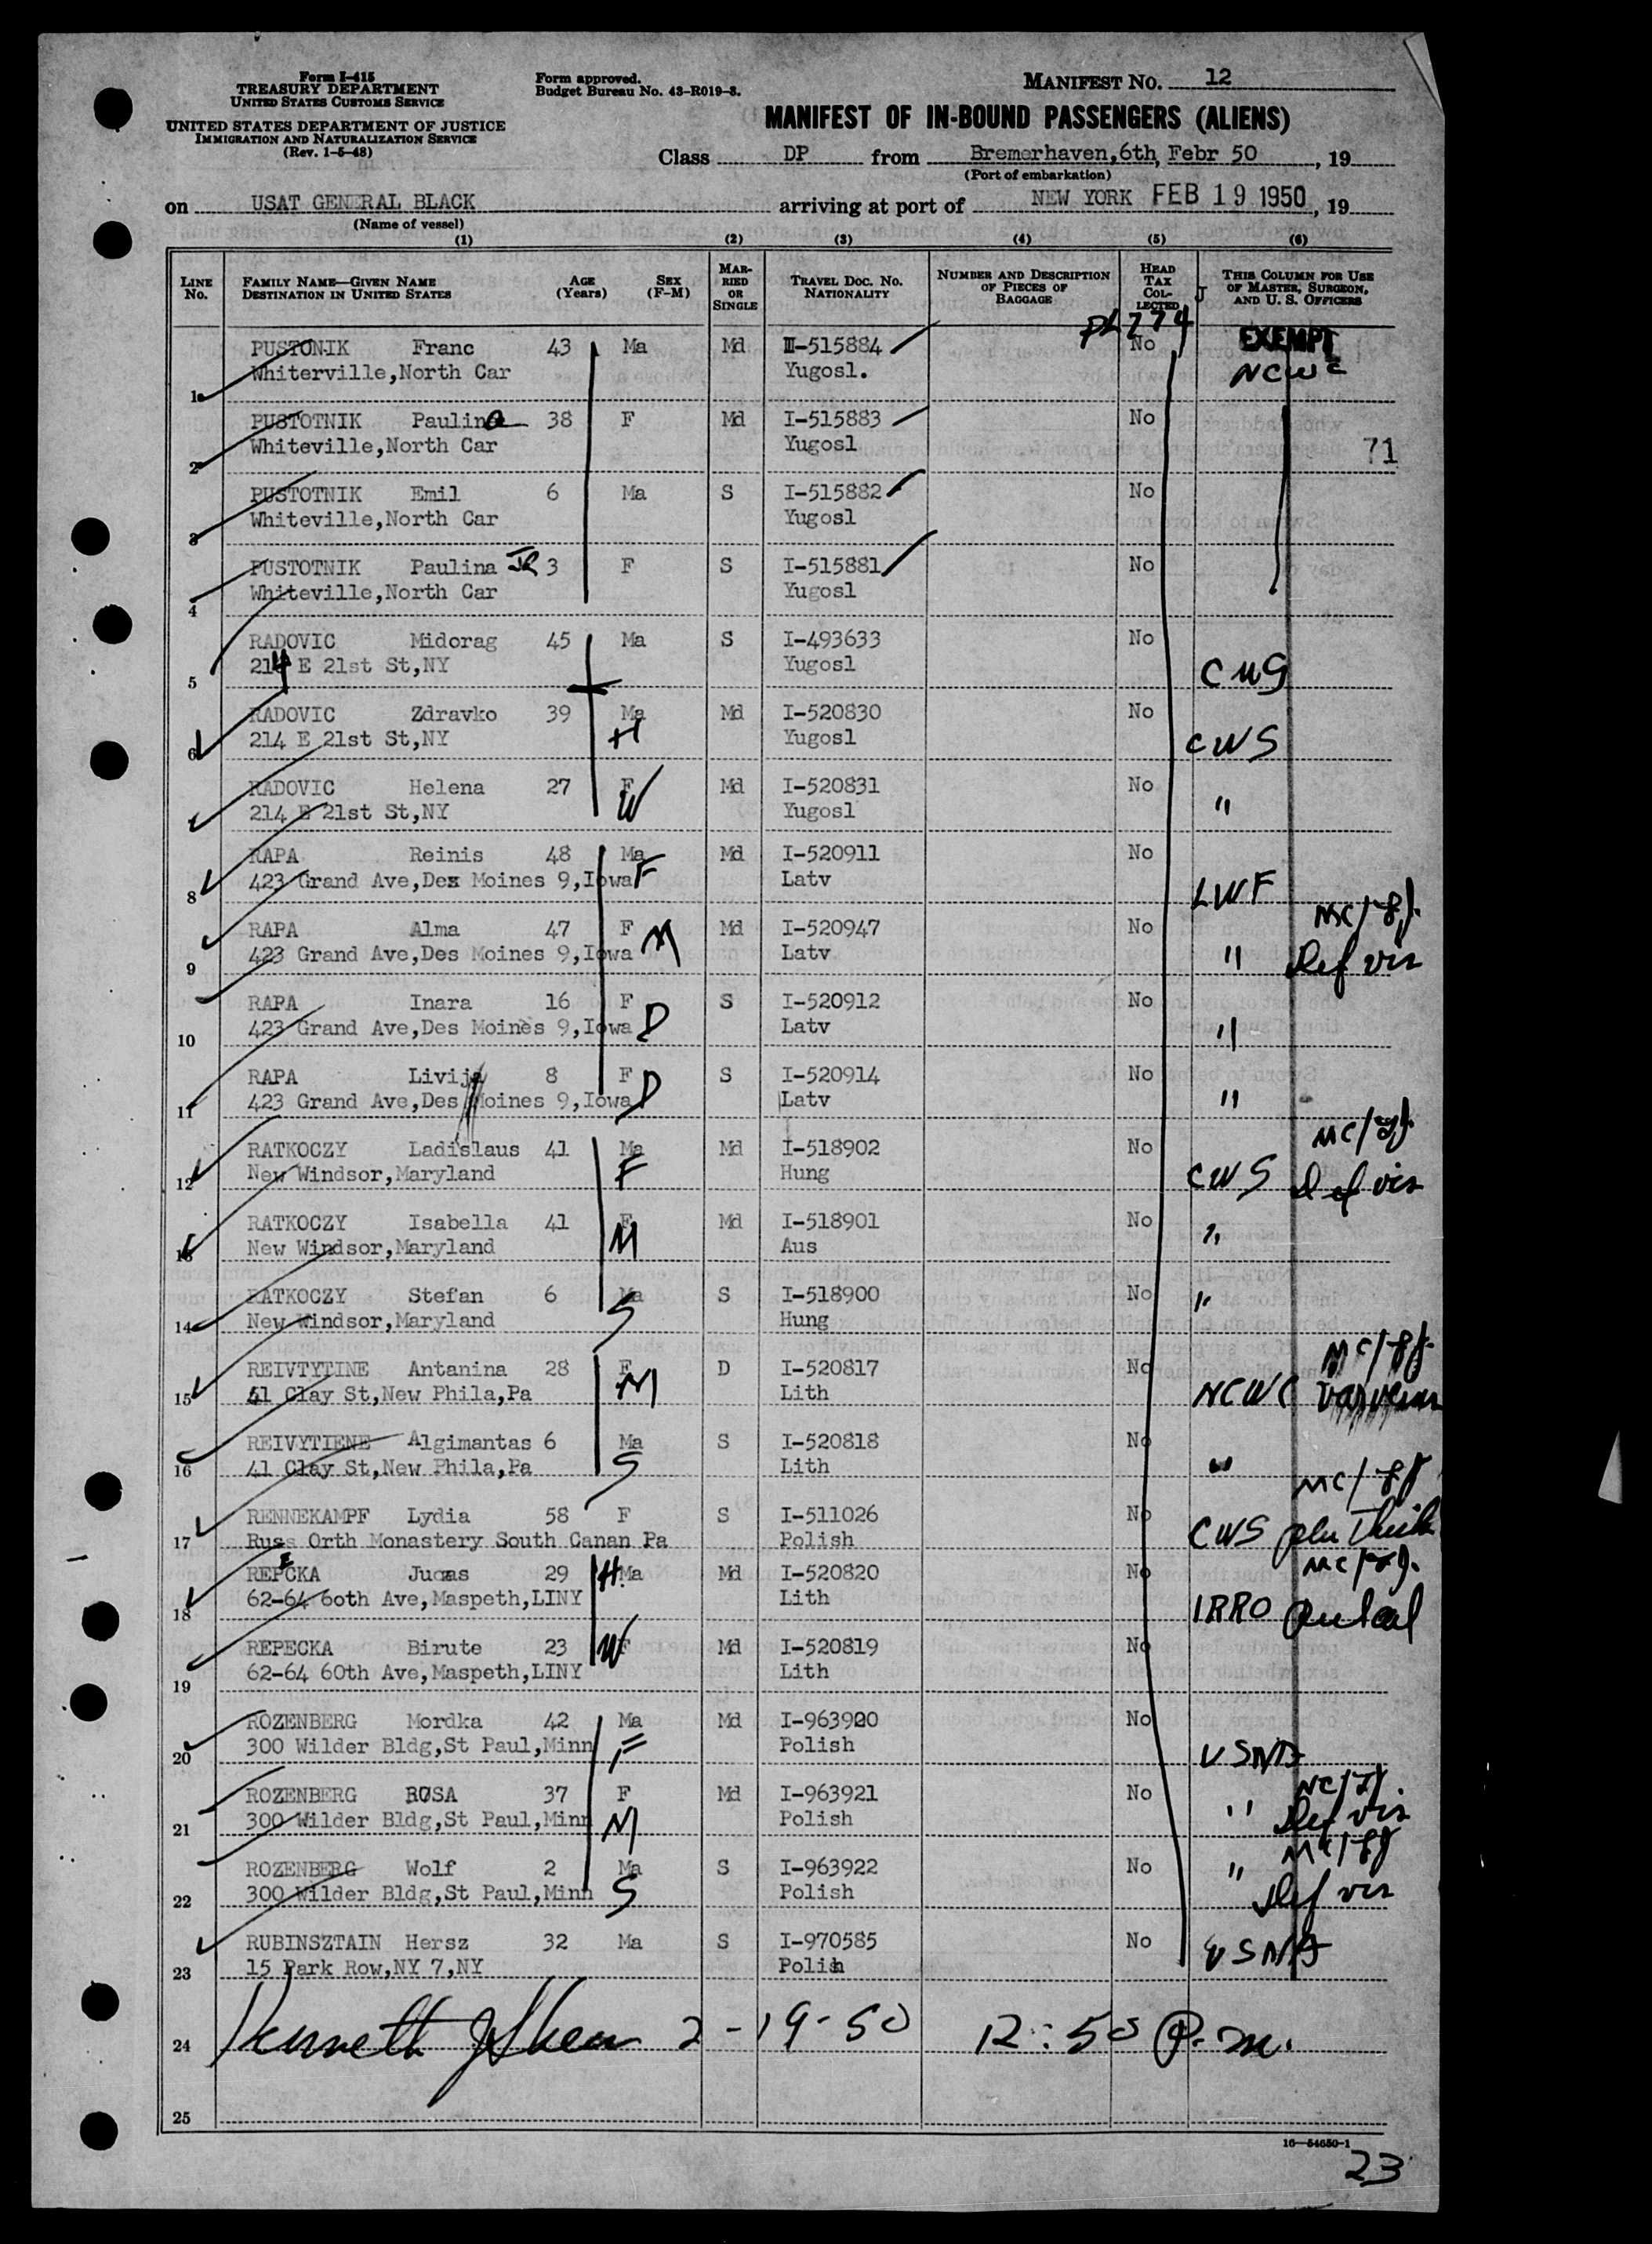 Form I-415
TREASURY DEPARTMENT
UNITED STATES CUSTOMS SERVICE
UNITED STATES DEPARTMENT OF JUSTICE
IMMIGRATION AND NATURALIZATION SERVICE
(Rev. 1-5-48)
Form approved.
Budget Bureau No. 43-R019-3.
MANIFEST NO. 12
MANIFEST OF IN-BOUND PASSENGERS (ALIENS)
Class DP from Bremerhaven,6th, Febr 50, 19
(Port of embarkation)
on USAT GENERAL BLACK arriving at port of NEW YORK FEB 19 1950, 19
(Name of vessel)
(1) (2) (3) (4) (5) (6)
LINE NO. FAMILY NAME—GIVEN NAME DESTINATION IN UNITED STATES AGE (Years) SEX (F-M) MARRIED OR SINGLE TRAVEL DOC. NO. NATIONALITY NUMBER AND DESCRIPTION OF PIECES OF BAGGAGE HEAD TAX COLLECTED THIS COLUMN FOR USE OF MASTER, SURGEON, AND U. S. OFFICERS
PL 774
PUSTONIK Franc 43 Ma Md III-515884 No EXEMPT
1 Whiterville,North Car Yugosl. NCWC
PUSTOTNIK Paulina 38 F Md I-515883 No
2 Whiteville,North Car Yugosl 71
PUSTOTNIK Emil 6 Ma S I-515882 No
3 Whiteville,North Car Yugosl
PUSTOTNIK Paulina JR 3 F S I-515881 No
4 Whiteville,North Car Yugosl
RADOVIC Midorag 45 Ma S I-493633 No
5 214 E 21st St,NY Yugosl
RADOVIC Zdravko 39 Ma Md I-520830 No
6 214 E 21st St,NY H Yugosl CWS
RADOVIC Helena 27 F Md I-520831 No
7 214 E 21st St,NY W Yugosl "
RAPA Reinis 48 Ma Md I-520911 No
8 423 Grand Ave,Des Moines 9,Iowa F Latv LWF
RAPA Alma 47 F Md I-520947 No
9 423 Grand Ave,Des Moines 9,Iowa M Latv " Def vis
RAPA Inara 16 F S I-520912 No
10 423 Grand Ave,Des Moines 9,Iowa D Latv "
RAPA Livija 8 F S I-520914 No
11 423 Grand Ave,Des Moines 9,Iowa D Latv "
RATKOCZY Ladislaus 41 Ma Md I-518902 No
12 New Windsor,Maryland F Hung CWS Def vis
RATKOCZY Isabella 41 F Md I-518901 No
13 New Windsor,Maryland M Aus "
RATKOCZY Stefan 6 Ma S I-518900 No
14 New Windsor,Maryland S Hung "
REIVTYTINE Antanina 28 F D I-520817 No
15 41 Clay St,New Phila,Pa M Lith NCWC
REIVYTIENE Algimantas 6 Ma S I-520818 No
16 41 Clay St,New Phila,Pa S Lith "
RENNEKAMPF Lydia 58 F S I-511026 No
17 Russ Orth Monastery South Canan Pa Polish CWS
REPECKA Juozas 29 H Ma Md I-520820 No
18 62-64 60th Ave,Maspeth,LINY Lith IRRO
REPECKA Birute 23 W F Md I-520819 No
19 62-64 60th Ave,Maspeth,LINY Lith
ROZENBERG Mordka 42 Ma Md I-963920 No
20 300 Wilder Bldg,St Paul,Minn F Polish USNA
ROZENBERG ROSA 37 F Md I-963921 No
21 300 Wilder Bldg,St Paul,Minn M Polish " Def vis
ROZENBERG Wolf 2 Ma S I-963922 No
22 300 Wilder Bldg,St Paul,Minn S Polish " Def vis
RUBINSZTAIN Hersz 32 Ma S I-970585 No
23 15 Park Row,NY 7,NY Polish USNA
24 Kenneth J Shea 2-19-50 12:50 P.m.
25
16—54650-1
23